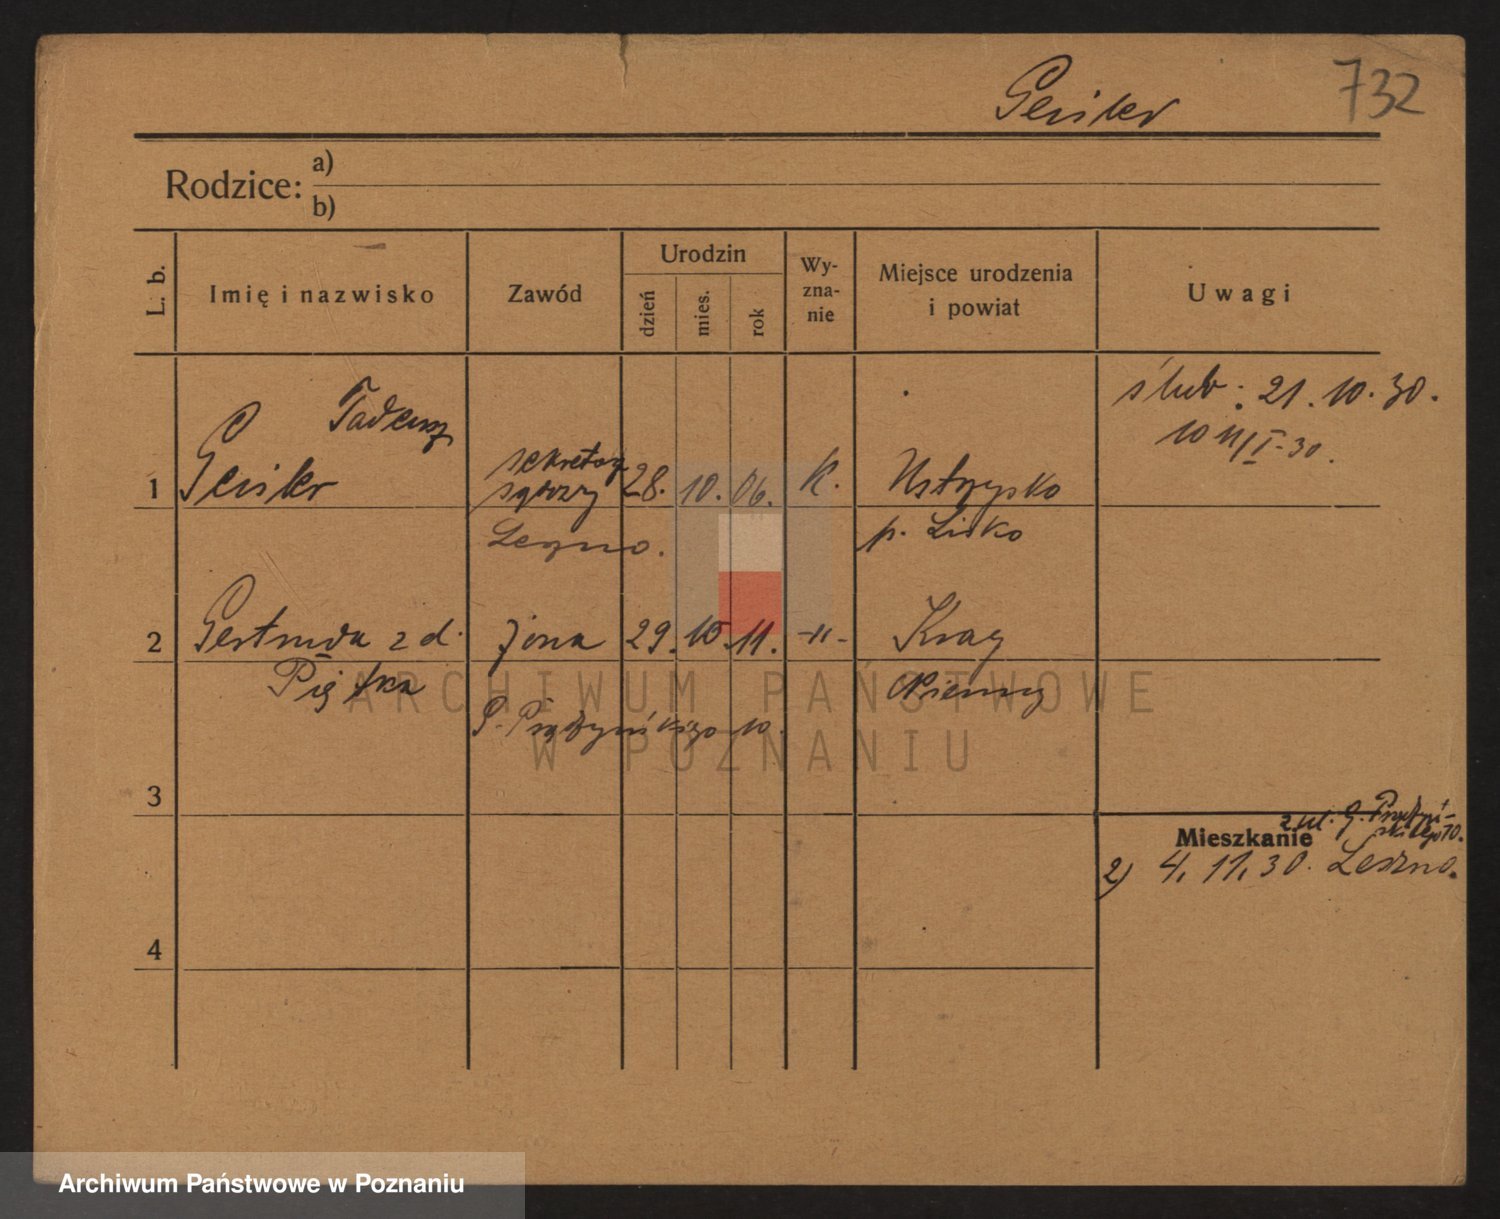 Geisler 732
Rodzice: a)
b)
L. b. Imię i nazwisko Zawód Urodzin dzień mies. rok Wy-zna-nie Miejsce urodzenia i powiat Uwagi
ślub: 21. 10. 30.
Tadeusz
sekretarz
1 Geisler sądowy 28. 10. 06. K. Ustrzysko
Leszno. p. Lisko
2 Gertruda z d. żona 29. 10. 11. -"- Kray
Piątka Niemcy
P. Prądzyńskiego 10.
3
Mieszkanie z ul. G. Prądzyń-
skiego 10.
2) 4. 11. 30. Leszno.
4
ARCHIWUM PAŃSTWOWE
W POZNANIU
Archiwum Państwowe w Poznaniu